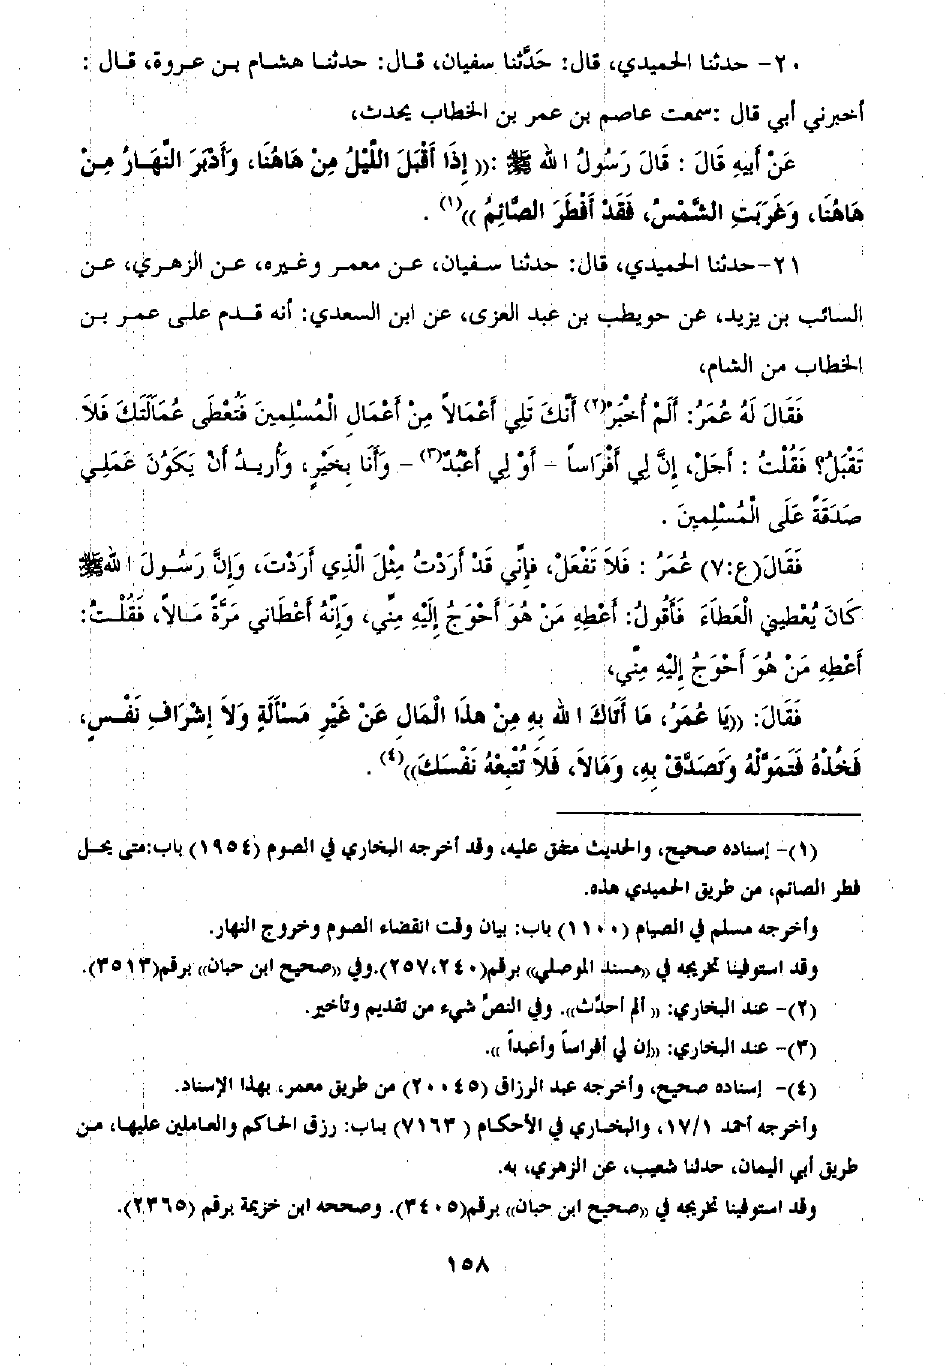 ٢٠- حدثنا الحميدي، قال: حَدَّثنا سفيان، قال: حدثنا هشام بن عروة، قال :
أخبرني أبي قال :سمعت عاصم بن عمر بن الخطاب يحدث،
عَنْ أَبِيهِ قَالَ : قَالَ رَسُولُ الله ﷺ :(( إِذَا أَقْبَلَ اللَّيْلُ مِنْ هَاهُنَا، وَأَدْبَرَ النَّهَارُ مِنْ
هَاهُنَا، وَغَرَبَتِ الشَّمْسُ، فَقَدْ أَفْطَرَ الصَّائِمُ ))(١) .
٢١-حدثنا الحميدي، قال: حدثنا سفيان، عن معمر وغيره، عن الزهري، عن
السائب بن يزيد، عن حويطب بن عبد العزى، عن ابن السعدي: أنه قدم على عمر بن
الخطاب من الشام،
فَقَالَ لَهُ عُمَرُ: أَلَمْ أُخْبَرْ(٢) أَنَّكَ تَلِي أَعْمَالاً مِنْ أَعْمَالِ الْمُسْلِمِينَ فَتُعْطَى عُمَالَتَكَ فَلاَ
تَقْبَلُ؟ فَقُلْتُ : أَجَلْ، إِنَّ لِي أَفْرَاساً - أَوْ لِي أَعْبُدٌ(٣) - وَأَنَا بِخَيْرٍ، وَأُرِيدُ أَنْ يَكُونَ عَمَلِي
صَدَقَةً عَلَى الْمُسْلِمِينَ .
فَقَالَ(ع:٧) عُمَرُ : فَلاَ تَفْعَلْ، فإِنِّي قَدْ أَرَدْتُ مِثْلَ الَّذِي أَرَدْتَ، وَإِنَّ رَسُولَ الله ﷺ
كَانَ يُعْطِينِي الْعَطَاءَ فَأَقُولُ: أَعْطِهِ مَنْ هُوَ أَحْوَجُ إِلَيْهِ مِنِّي، وَإِنَّهُ أَعْطَانِي مَرَّةً مَالاً، فَقُلْتُ:
أَعْطِهِ مَنْ هُوَ أَحْوَجُ إِلَيْهِ مِنِّي،
فَقَالَ: ((يَا عُمَرُ، مَا أَتَاكَ الله بِهِ مِنْ هذَا الْمَالِ عَنْ غَيْرِ مَسْأَلَةٍ وَلاَ إِشْرَافِ نَفْسٍ،
فَخُذْهُ فَتَمَوَّلْهُ وَتَصَدَّقْ بِهِ، وَمَالاَ، فَلاَ تُتْبِعْهُ نَفْسَكَ))(٤) .
(١)- إسناده صحيح، والحديث متفق عليه، وقد أخرجه البخاري في الصوم (١٩٥٤) باب:متى يحل
فطر الصائم، من طريق الحميدي هذه.
وأخرجه مسلم في الصيام (١١٠٠) باب: بيان وقت انقضاء الصوم وخروج النهار.
وقد استوفينا تخريجه في ((مسند الموصلي)) برقم(٢٥٧،٢٤٠).وفي ((صحيح ابن حبان)) برقم(٣٥١٣).
(٢)- عند البخاري: (( ألم أحدَّث)). وفي النصِّ شيء من تقديم وتأخير.
(٣)- عند البخاري: ((إن لي أفراساً وأعبداً )).
(٤)- إسناده صحيح، وأخرجه عبد الرزاق (٢٠٠٤٥) من طريق معمر، بهذا الإسناد.
وأخرجه أحمد ١٧/١، والبخاري في الأحكام ( ٧١٦٣) باب: رزق الحاكم والعاملين عليها، من
طريق أبي اليمان، حدثنا شعيب، عن الزهري، به.
وقد استوفينا تخريجه في ((صحيح ابن حبان)) برقم(٣٤٠٥). وصححه ابن خزيمة برقم (٢٣٦٥).
١٥٨